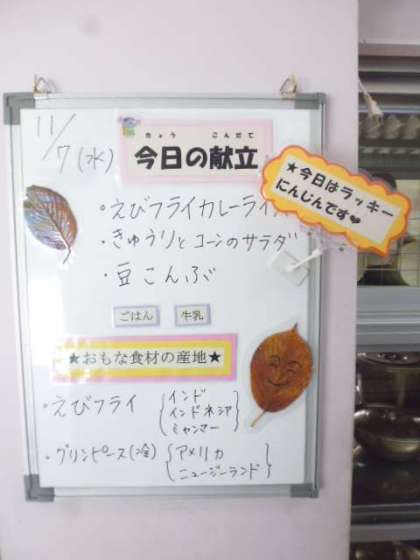 11/7(水)
きょう こんだて
今日の献立
★今日はラッキー
にんじんです♥
・えびフライカレーライ
・きゅうりとコーンのサラダ
・豆こんぶ
ごはん 牛乳
★おもな食材の産地★
・えびフライ {インド
インドネシア
ミャンマー}
・グリンピース(冷) {アメリカ
ニュージーランド}